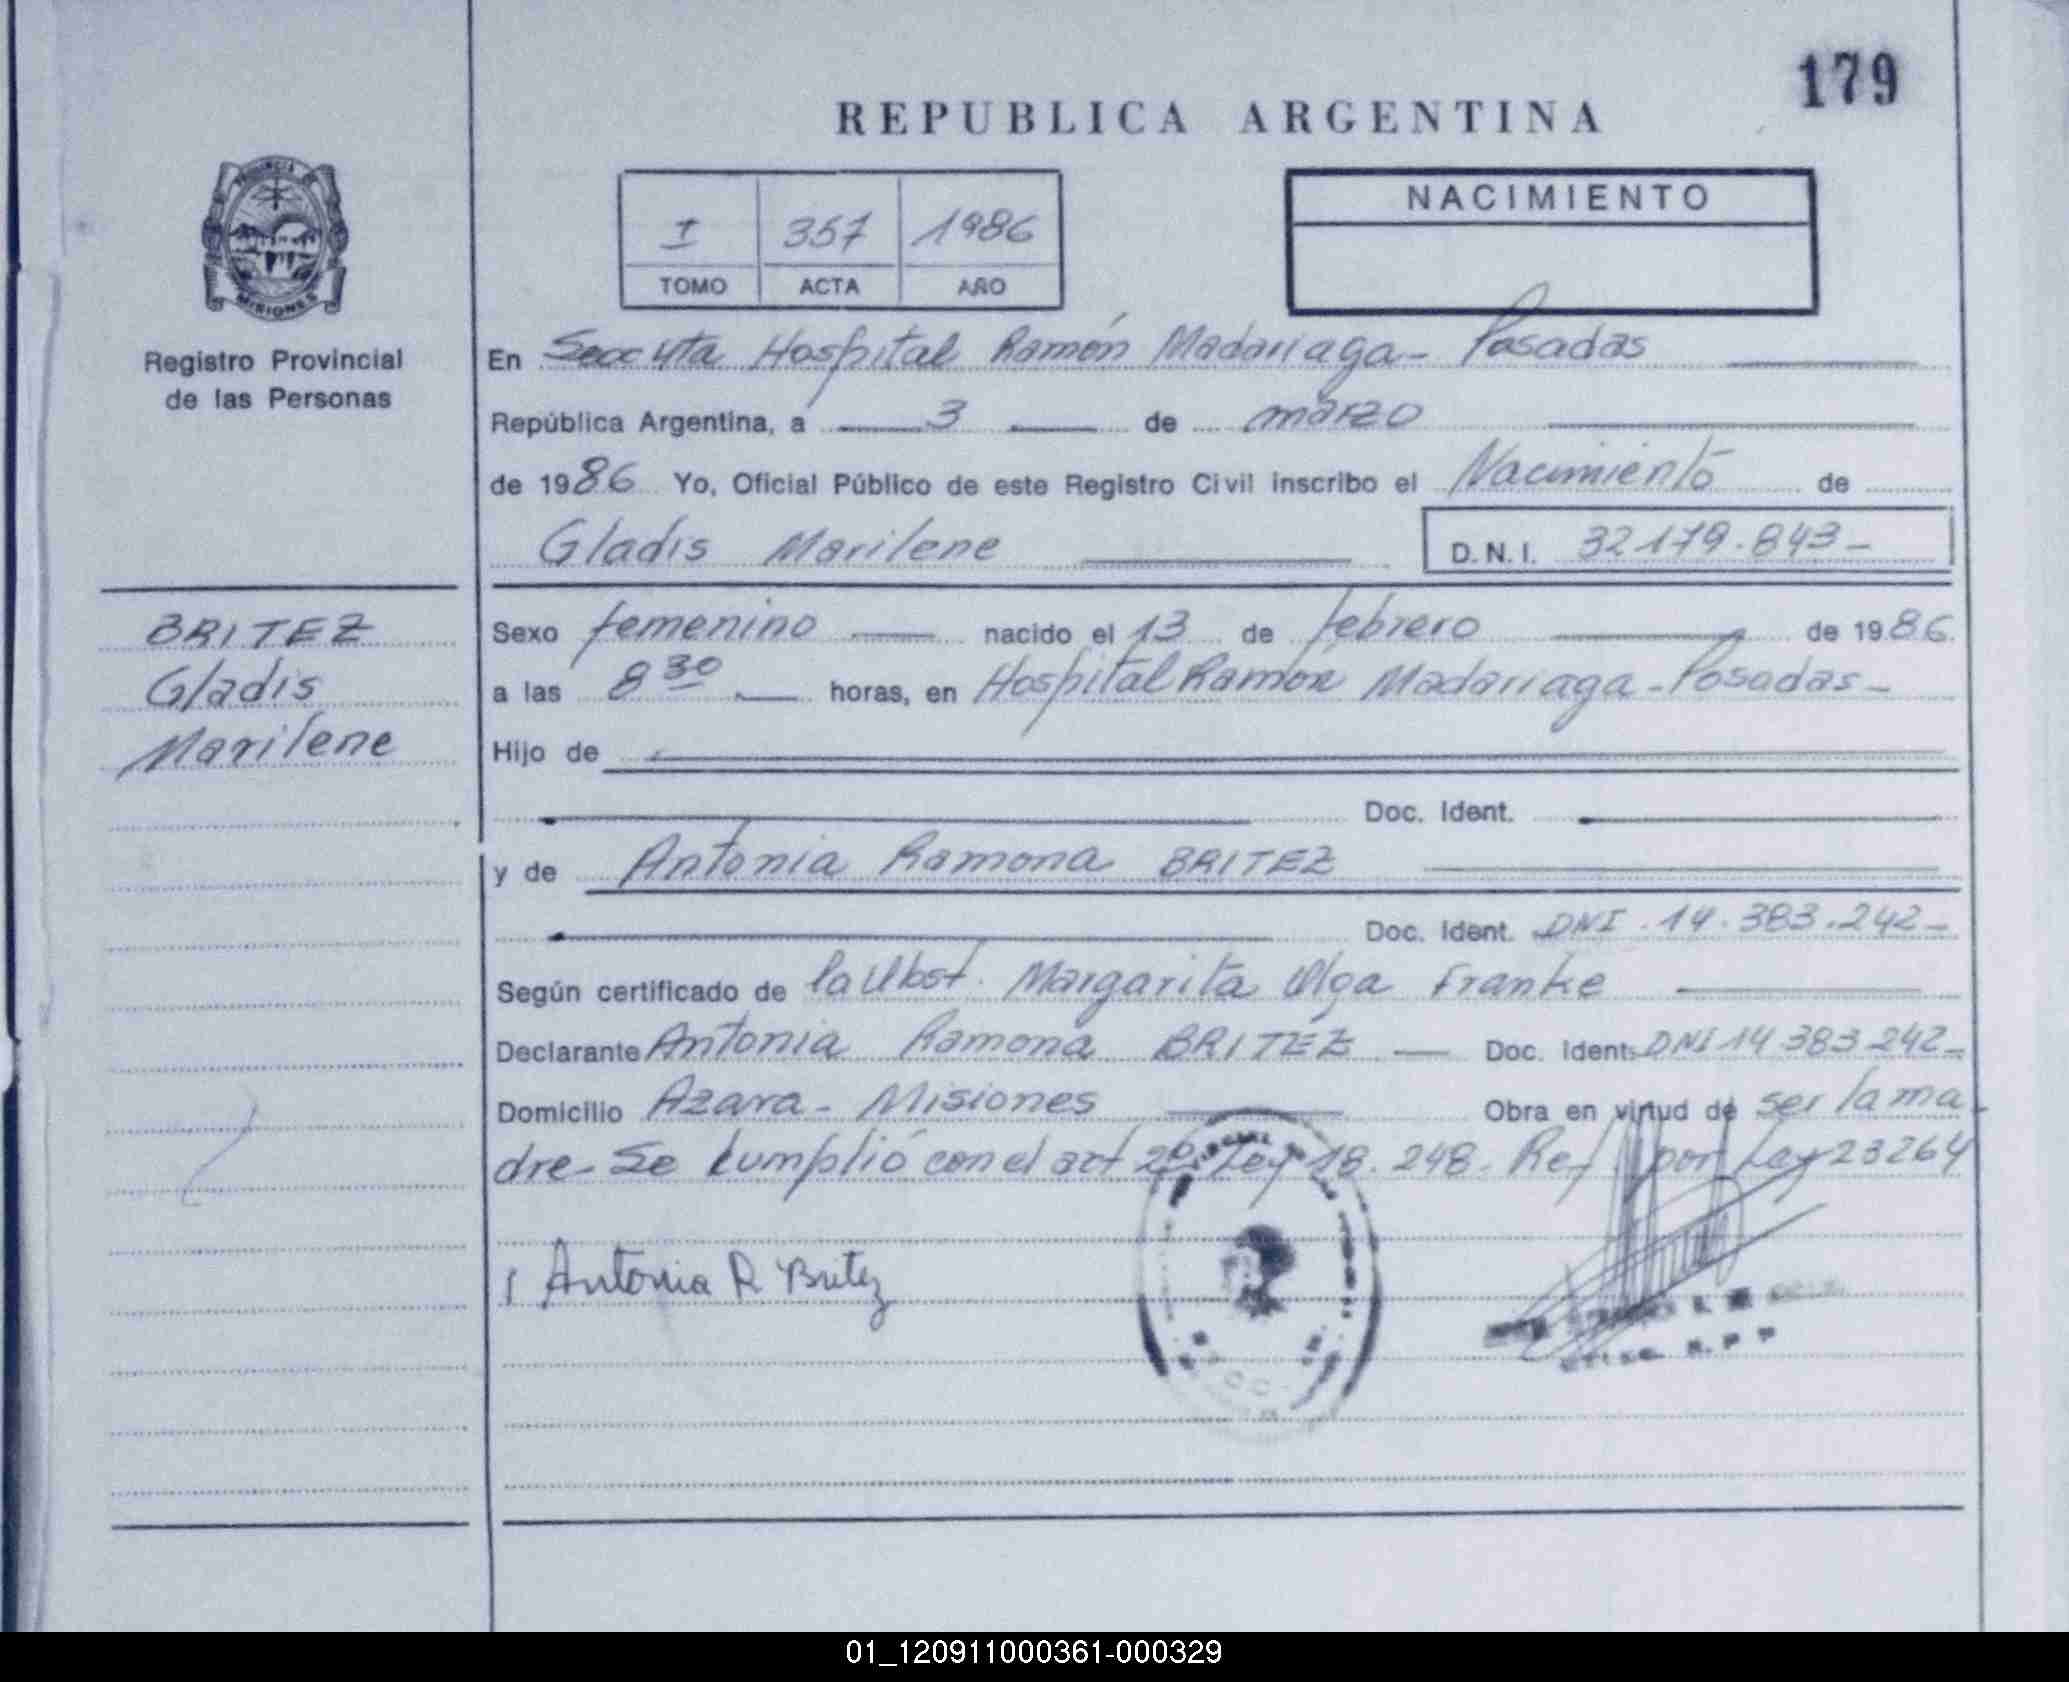 179
REPUBLICA ARGENTINA
PROVINCIA DE
MISIONES
Registro Provincial
de las Personas
I 357 1986
TOMO ACTA AÑO
NACIMIENTO
En Secc 4ta Hospital Ramón Madariaga - Posadas
República Argentina, a 3 de marzo
de 1986 Yo, Oficial Público de este Registro Civil inscribo el Nacimiento de
Gladis Marilene D.N.I. 32179.843-
BRITEZ
Gladis
Marilene
Sexo femenino nacido el 13 de febrero de 1986.
a las 8 30 horas, en Hospital Ramón Madariaga - Posadas -
Hijo de
Doc. Ident.
y de Antonia Ramona BRITEZ
Doc. Ident. DNI. 14.383.242-
Según certificado de la Obst. Margarita Olga Franke
Declarante Antonia Ramona BRITEZ - Doc. Ident. DNI 14 383 242-
Domicilio Azara - Misiones Obra en virtud de ser la ma
dre - Se cumplió con el art 20 Ley 18.248. Ref. por Ley 23264
Antonia R Britez
R.P.P
01_120911000361-000329